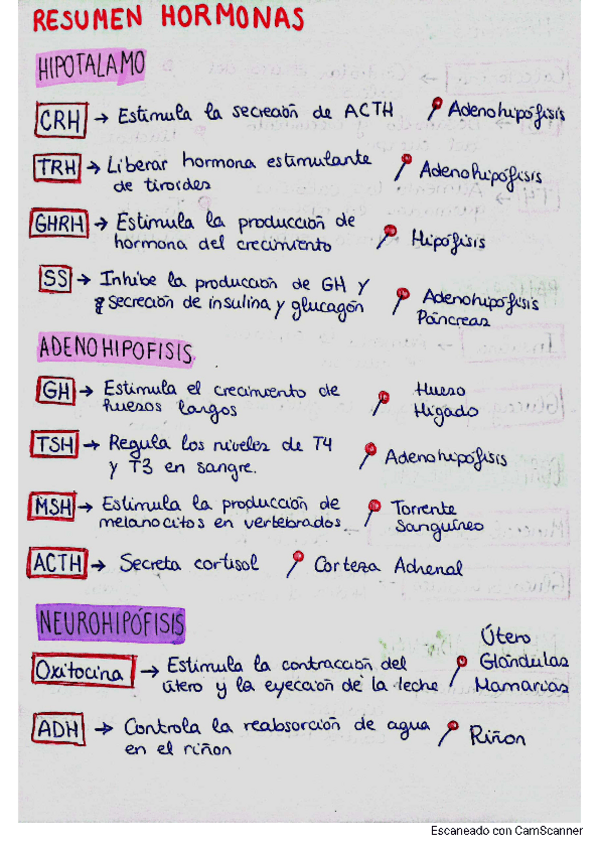 RESUMEN HORMONAS
HIPOTALAMO
CRH → Estimula la secreción de ACTH Adenohipófisis
TRH → Liberar hormona estimulante Adenohipófisis
de tiroides
GHRH → Estimula la producción de Hipófisis
hormona del crecimiento
SS → Inhibe la producción de GH y Adenohipófisis
secreción de insulina y glucagón Páncreas
ADENOHIPOFISIS
GH → Estimula el crecimiento de Hueso
huesos largos Hígado
TSH → Regula los niveles de T4 Adenohipófisis
y T3 en sangre.
MSH → Estimula la producción de Torrente
melanocitos en vertebrados Sanguíneo
ACTH → Secreta cortisol Corteza Adrenal
NEUROHIPÓFISIS
Útero
Oxitocina → Estimula la contracción del Glándulas
útero y la eyección de la leche Mamarias
ADH → Controla la reabsorción de agua Riñon
en el riñon
Escaneado con CamScanner